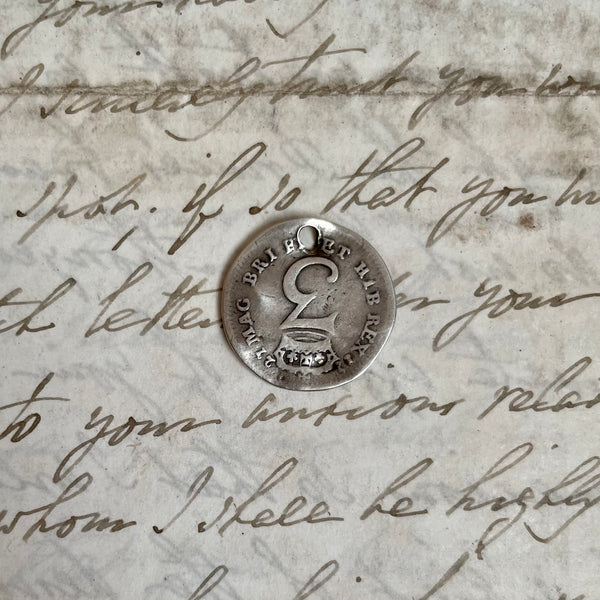 I sincerely trust you
spot, if so that you
letter your
to your anxious
whom I shall be highly
MAG BRI ET HIB REX
3